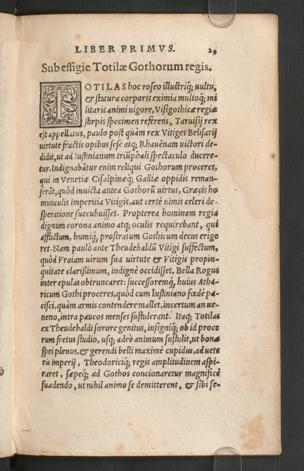 LIBER PRIMVS. 29
Sub effigie Totilæ Gothorum regis.
TOTILAS hoc roseo illustriq; uultu,
& statura corporis eximia multoq; mi
litaris animi uigore, Visigothicæ regiæ
stirpis specimen referens, Taruisij rex
est appellatus, paulo post quàm rex Vitiges Belisarij
uirtute fractis opibus sese atq; Rhauennam uictori de
didit, ut ad Iustinianum triũphali spectaculo ducere-
tur. Indignabãtur enim reliqui Gothorum proceres,
qui in Venetiæ Cisalpinæq; Galliæ oppidis reman-
serãt, quòd inuicta antea Gothorũ uirtus, Græcis ho
munculis imperitia Vitigis, aut certè nimis celeri de-
speratione succubuisset. Propterea hominem regia
dignum corona animo atq; oculis requirebant, qui
afflictum, humiq; prostratum Gothicum decus erige
ret. Nam paulò ante Theudebaldũ Vitigi suffectum,
quòd Vraiam uirum sua uirtute & Vitigis propin-
quitate clarissimum, indignè occidisset, Bella Rogus
inter epulas obtruncarat: successoremq; huius Atha-
ricum Gothi proceres, quòd cum Iustiniano fœdè pa-
cisci, quàm armis contendere mallet, incertum an ue-
neno, intra paucos menses sustulerant. Itaq; Totilas
ex Theudebaldi sorore genitus, insigniq; ob id proce
rum fretus studio, usq; adeò animum sustulit, ut bonæ
spei plenus, & gerendi belli maximè cupidus, ad uete
ris imperij, Theodoriciq; regis amplitudinem aspi-
raret, sæpeq; ad Gothos concionaretur magnificè
suadendo, ut nihil animo se demitterent, & sibi se-